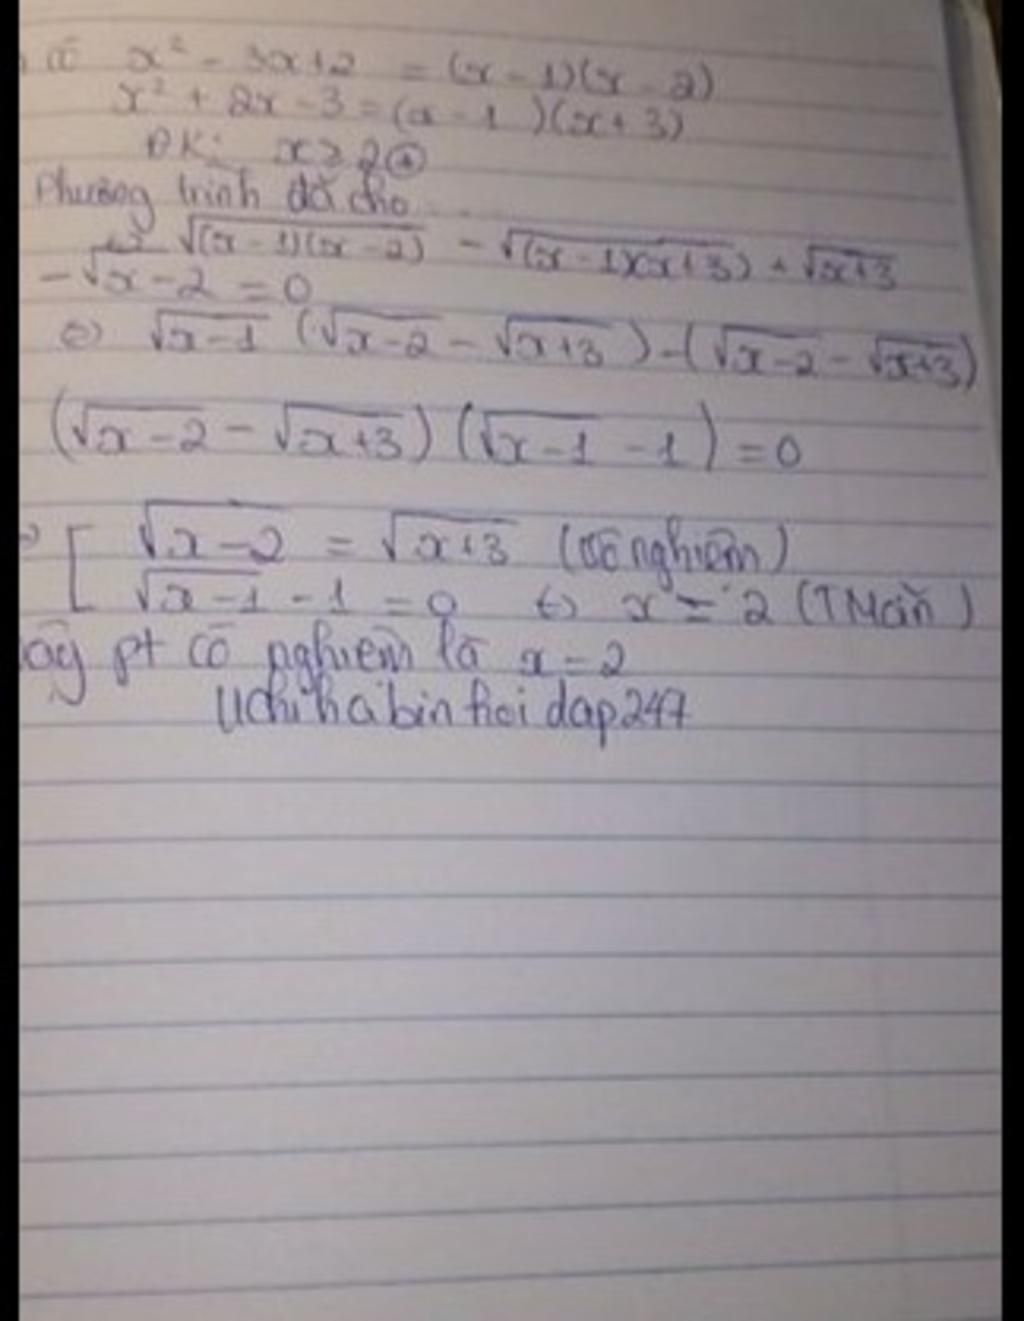 có x² - 3x+2 = (x - 1)(x - 2)
x² + 2x - 3 = (x - 1)(x+3)
ĐK: x ≥ 2 (*)
Phương trình đã cho
<=> √(x - 1)(x - 2) - √(x - 1)(x+3) + √x+3
- √x - 2 = 0
<=> √x-1 (√x-2 - √x+3) - (√x-2 - √x+3)
(√x-2 - √x+3)(√x-1 - 1) = 0
[ √x-2 = √x+3 (Vô nghiệm)
√x-1 - 1 = 0 <=> x = 2 (TMãn)
pt có nghiệm là x = 2
Uchihabin hoi dap247